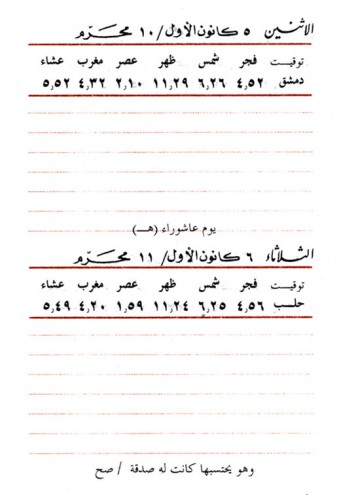 الاثنين ٥ كانون الأول / ١٠ محرّم
توقيت فجر شمس ظهر عصر مغرب عشاء
دمشق ٤,٥٢ ٦,٢٦ ١١,٢٩ ٢,١٠ ٤,٣٢ ٥,٥٢
يوم عاشوراء (هـ)
الثلاثاء ٦ كانون الأول / ١١ محرّم
توقيت فجر شمس ظهر عصر مغرب عشاء
حلب ٤,٥٦ ٦,٢٥ ١١,٢٤ ١,٥٩ ٤,٢٠ ٥,٤٩
وهو يحتسبها كانت له صدقة / صح